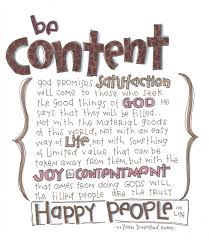 be
content
god promises satisfaction
will come to those who seek
the good things of GOD. He
says that they will be filled..
not with the material goods
of this world, not with an easy
way of Life, not with something
of limited value that can be
taken away from them, but with the
JOY & CONTENTMENT
that comes from doing GODS will
the filled people are the truly
Happy people in
Life
- colleen townsend evans